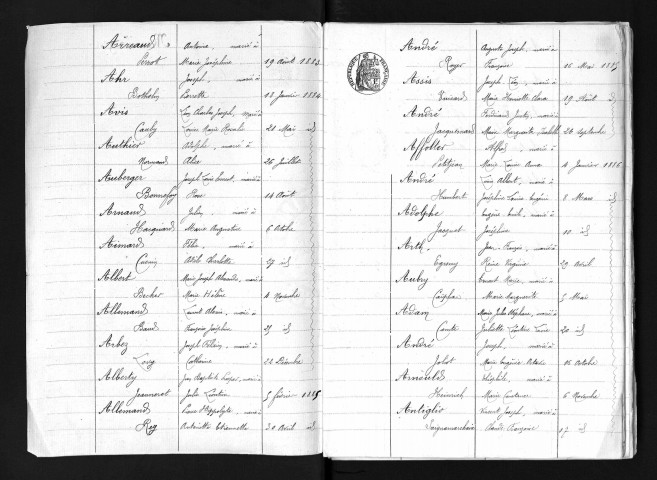 Antoine, marié à
Perrot Marie Joséphine 19 Août 1883
Ahr Joseph, marié à
Pierrette 12 Janvier 1884
Avis Léon Charles Joseph, marié à
Cauly Louise Marie Rosalie 21 Mai id
Authier Adolphe, marié à
Normand Alice 26 Juillet
Auberger Joseph Louis Ernest, marié à
Bonnefoy Rose 14 Août
Arnaud Julien, marié à
Hacquard Marie Augustine 6 Octobre
Aimard Félix, marié à
Adèle Charlotte 27 id
Albert Marie Joseph Alexandre, marié à
Becker Marie Hélène 4 Novembre
Allemand Laurent Alexis, marié à
Baud Françoise Joséphine 27 id
Arbez Joseph Félicien, marié à
Catherine 22 Décembre
Alberty Jean Baptiste, marié à
Jeanneret Julie 5 février 1885
Allemand Louis Hippolyte, marié à
Rey Antoinette Etiennette 30 Avril id
André Auguste Joseph, marié à
Roger Françoise 16 Mai 1885
Assis Joseph Léon, marié à
Marie Henriette Clara 19 Août id
André Ferdinand Justin, marié à
Jacquemard Marie Marguerite Isabelle 26 Septembre
Affolter Alfred, marié à
Petitjean Marie Louise Anna 4 Janvier 1886
André Louis Albert, marié à
Humbert Joséphine Louise Eugénie 8 Mars id
Adolphe Eugène Emile, marié à
Jacquet Joséphine 10 id
Arth Jean François, marié à
Reine Virginie 29 Avril
Aubry Ernest Marie, marié à
Marie Marguerite 5 Mai
Adam Marie Jules Stéphane, marié à
Comte Juliette Léontine Lucie 20 id
André Joseph, marié à
Jobot Marie Eugénie Octavie 16 Octobre
Arnould Théophile, marié à
Heinrich Marie 6 Novembre
Antiglio Vincent Joseph, marié à
Claude Françoise 17 id